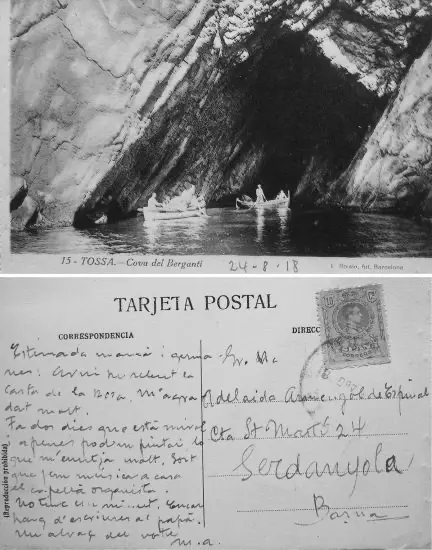 15 - TOSSA. - Cova del Berganti
24-8-18
L. Roisin, fot. Barcelona
TARJETA POSTAL
CORRESPONDENCIA
DIRECC
Estimada mamá i germa-
nes: Avui he rebut la
carta de la Rosa. M'agra
dat molt.
Fa dos dies que està
apenes podem pintar lo
que m'enutja molt. Sort
que fem música a casa
el capellà organista.
No tinc
d'escriure al papà.
Una abraç del vostre
M.A.
Adelaida Armengol de Espinal
Cta St Martí 24
Serdanyola
Barna
(Reproducción prohibida)
10 CS 10
CORREOS